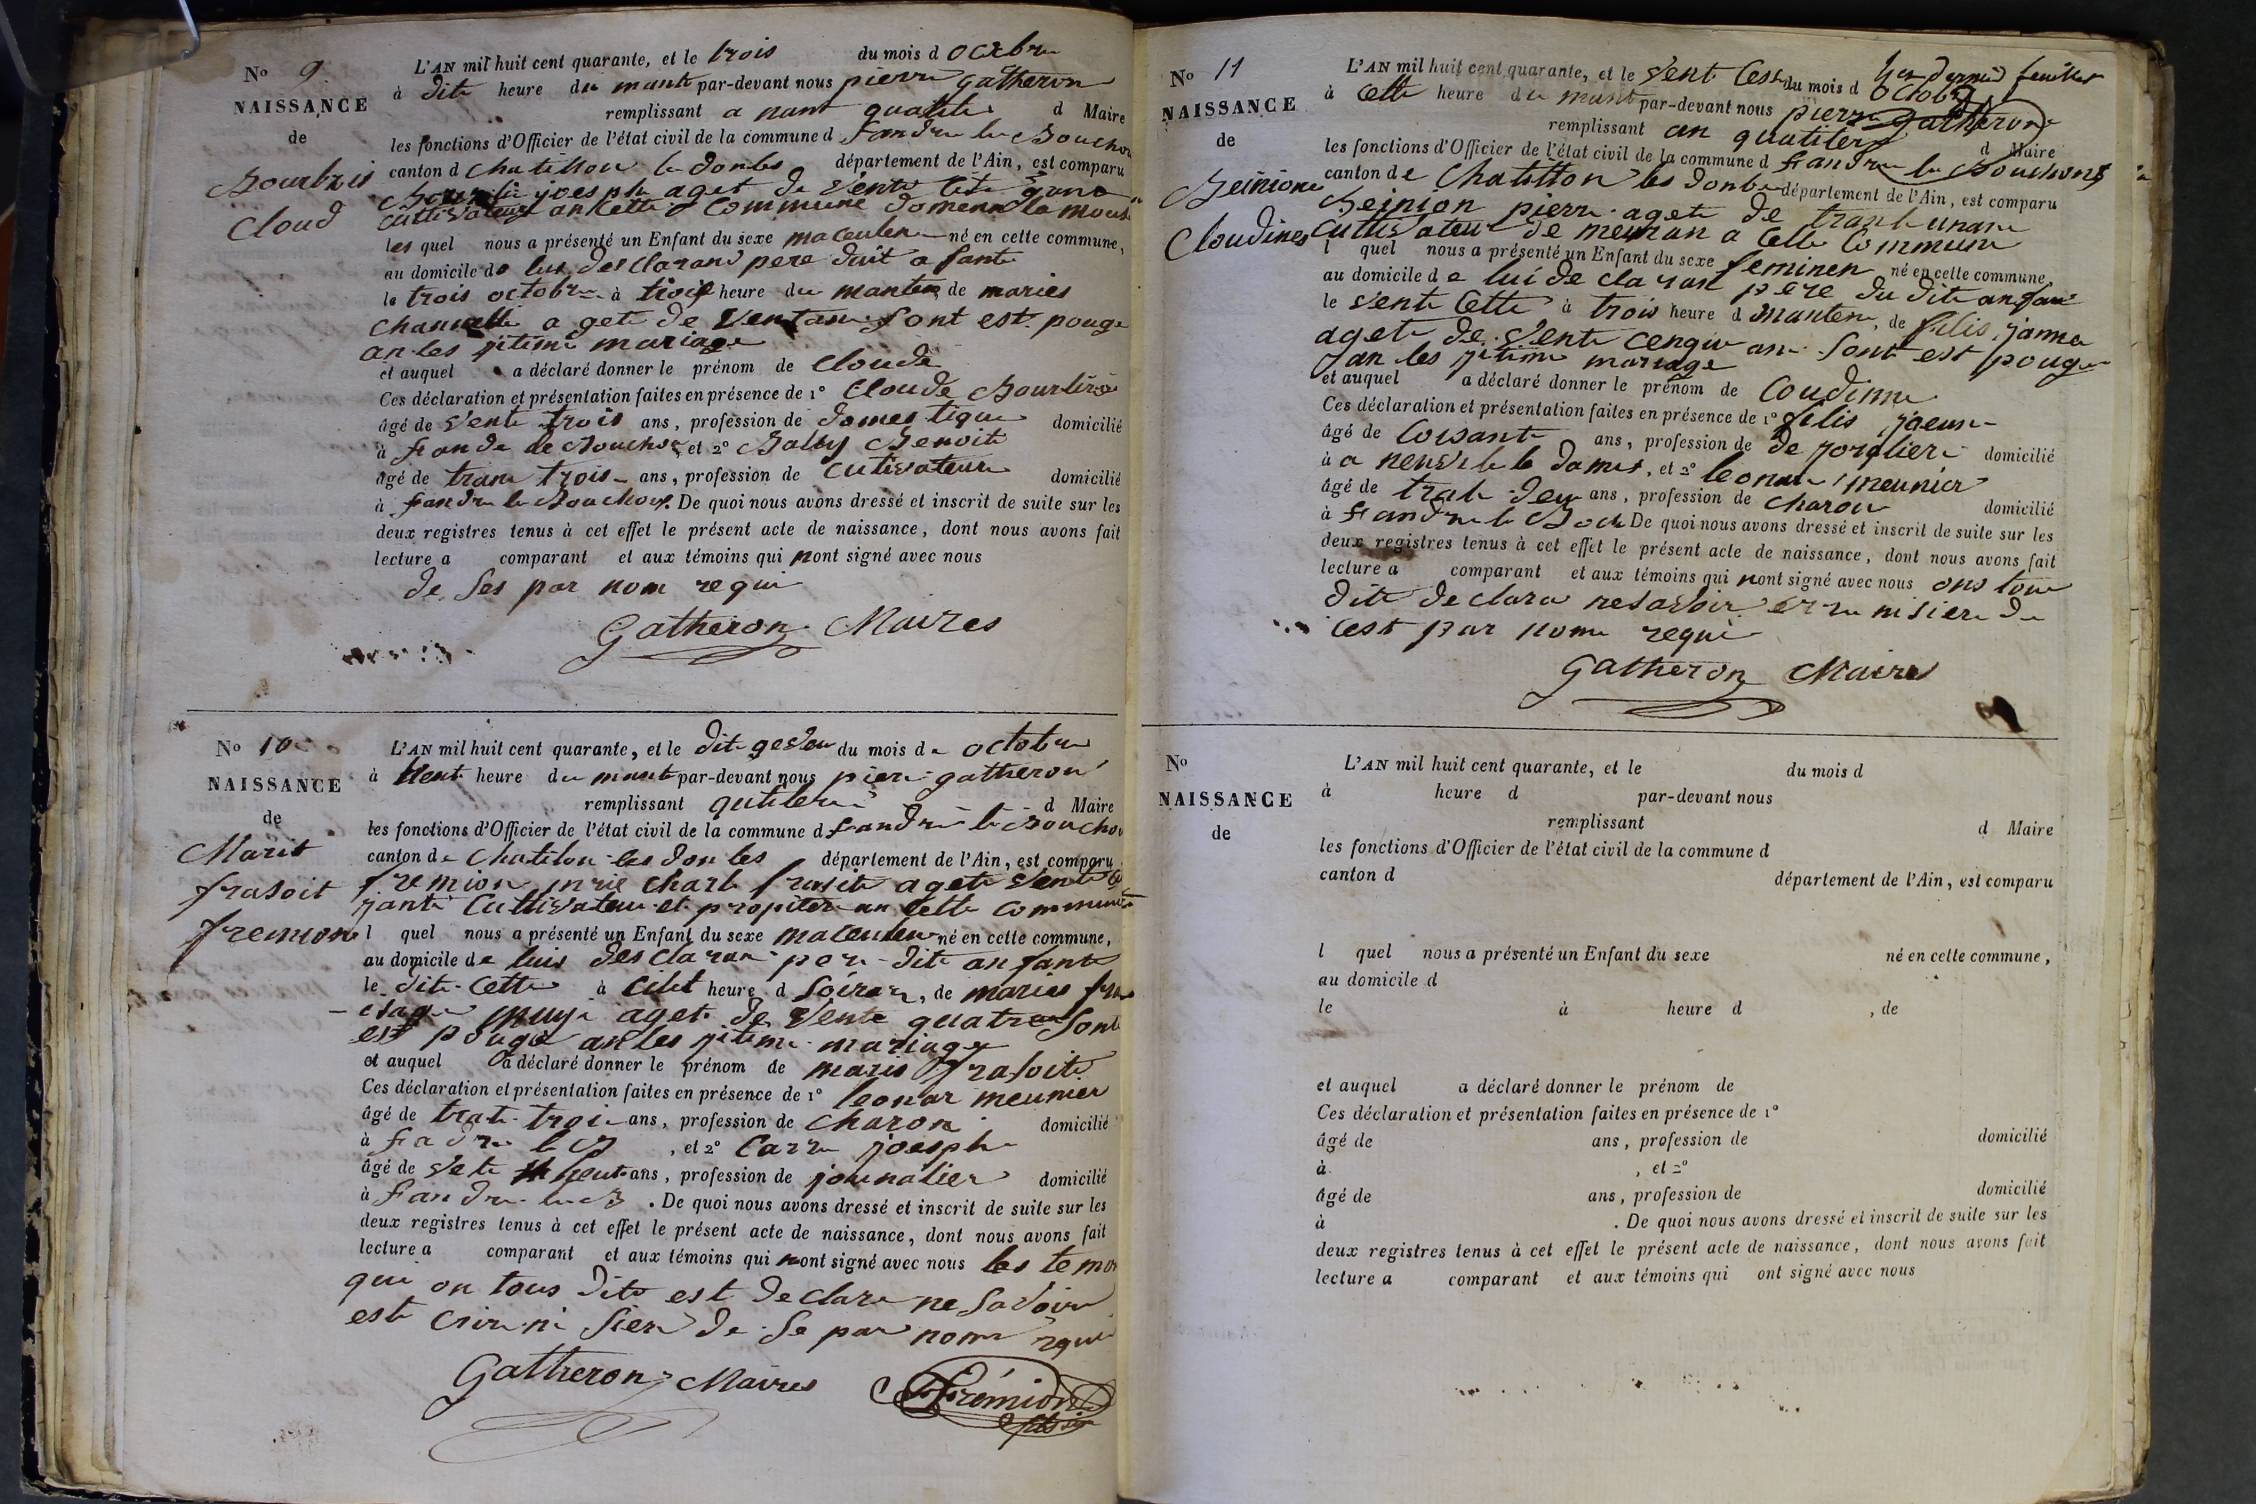 No 9
NAISSANCE
de
Bourbris
Cloud
L'AN mil huit cent quarante, et le trois du mois d octbre
à dite heure du mante par-devant nous pierre gatheron
remplissant a nant qualite d Maire
les fonctions d'Officier de l'état civil de la commune d fandre le Bouchou
canton d chatillon le dombes département de l'Ain, est comparu
joesph aget de vente
cultivateur an cette commune
les quel nous a présenté un Enfant du sexe maceulen né en cette commune,
au domicile de lui desclarand pere duit a fante
le trois octobre à trois heure du manten de maries
a gete de font est pouge
an les jitime mariage
et auquel a déclaré donner le prénom de cloude
Ces déclaration et présentation faites en présence de 1° Cloude Bourbris
âgé de vente trois ans, profession de domestique domicilié
à frande le Bouchou, et 2° Balby Benoite
âgé de trane trois ans, profession de cutivateur domicilié
à fandre le Bouchoux. De quoi nous avons dressé et inscrit de suite sur les
deux registres tenus à cet effet le présent acte de naissance, dont nous avons fait
lecture a comparant et aux témoins qui nont signé avec nous
de ses par nom requi
Gatheron Maires
No 10
NAISSANCE
de
Marit
frasoit
fremion
L'AN mil huit cent quarante, et le dit du mois de octobre
à heure du mante par-devant nous piere gatheron
remplissant d Maire
les fonctions d'Officier de l'état civil de la commune d fandre le Bouchou
canton de chatilon les dombes département de l'Ain, est comparu
fremion charle frasite agete vente
cultivateur et propiter an cette commune
l quel nous a présenté un Enfant du sexe maceulen né en cette commune,
au domicile de luis desclaran pere dite an fante
le dite cette à heure d soirer, de maries
agete de vente quatre ans sont
est pouge an les jitime mariage
et auquel a déclaré donner le prénom de maris frasoite
Ces déclaration et présentation faites en présence de 1° leonar meunier
âgé de trate trois ans, profession de charon domicilié
à fadre le B, et 2° Carre joesph
âgé de vete neut ans, profession de journalier domicilié
à fandre le B. De quoi nous avons dressé et inscrit de suite sur les
deux registres tenus à cet effet le présent acte de naissance, dont nous avons fait
lecture a comparant et aux témoins qui nont signé avec nous les temoi
qui on tous dite est declare ne savoire
est crire ni sier de se par nom requi
Gatheron Maires Frémion fils
No 11
NAISSANCE
de
Beinione
Cloudines
feuillet
L'AN mil huit cent quarante, et le vent cest du mois d octobre
à cette heure du mant par-devant nous pierre gatheron
remplissant an quatiler d Maire
les fonctions d'Officier de l'état civil de la commune d frandre le Bouchous
canton de chatitton les donbe département de l'Ain, est comparu
Beinion pierre agete de trante unane
cultivateur de meuran a cette commune
l quel nous a présenté un Enfant du sexe feminen né en cette commune,
au domicile de lui de claran pere du dite anfan
le vente cette à trois heure d manten, de filis janne
agete de vente cenque ans sont est pouge
an les jitime mariage
et auquel a déclaré donner le prénom de Coudinne
Ces déclaration et présentation faites en présence de 1° filis
âgé de coisante ans, profession de de jornalier domicilié
à a neuvile le dames, et 2° leonar meunier
âgé de trate deux ans, profession de charon domicilié
à frandre le Bouch De quoi nous avons dressé et inscrit de suite sur les
deux registres tenus à cet effet le présent acte de naissance, dont nous avons fait
lecture a comparant et aux témoins qui nont signé avec nous ons tous
dite declara nesavoir nisiere de
cest par nome requi
Gatheron Maires
No
NAISSANCE
de
L'AN mil huit cent quarante, et le du mois d
à heure d par-devant nous
remplissant d Maire
les fonctions d'Officier de l'état civil de la commune d
canton d département de l'Ain, est comparu
l quel nous a présenté un Enfant du sexe né en cette commune,
au domicile d
le à heure d , de
et auquel a déclaré donner le prénom de
Ces déclaration et présentation faites en présence de 1°
âgé de ans, profession de domicilié
à , et 2°
âgé de ans, profession de domicilié
à . De quoi nous avons dressé et inscrit de suite sur les
deux registres tenus à cet effet le présent acte de naissance, dont nous avons fait
lecture a comparant et aux témoins qui ont signé avec nous